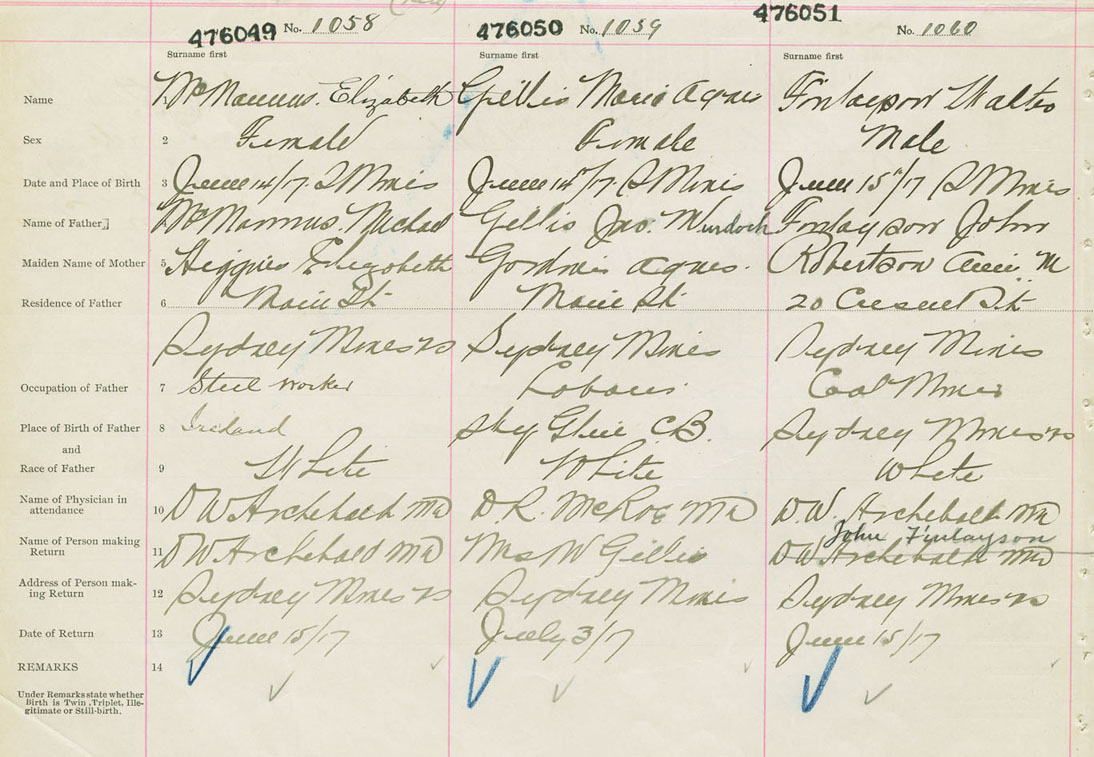 476049 No. 1058 476050 No. 1059 476051 No. 1060
Surname first Surname first Surname first
Name 1 McManus. Elizabeth Gillis Marie Agnes Finlayson Walter
Sex 2 Female Female Male
Date and Place of Birth 3 June 14/17. S Mines June 14/17. S Mines June 15/17 S Mines
Name of Father 4 McManus. Michael Gillis Jno. Murdoch Finlayson John
Maiden Name of Mother 5 Higgins Elizabeth Agnes. Robertson M
Residence of Father 6 Main St Main St 20 Crescent St
Sydney Mines NS Sydney Mines Sydney Mines
Occupation of Father 7 Steel worker Laborer Coal Miner
Place of Birth of Father 8 Ireland Sky Glen C.B. Sydney Mines NS
and
Race of Father 9 White White White
Name of Physician in
attendance 10 D W Archibald MD D. R. McRae MD D. W. Archibald MD
Name of Person making John Finlayson
Return 11 D W Archibald MD Mrs W Gillis D W Archibald MD
Address of Person mak-
ing Return 12 Sydney Mines NS Sydney Mines Sydney Mines NS
Date of Return 13 June 15/17 July 3/17 June 15/17
REMARKS 14
Under Remarks state whether
Birth is Twin, Triplet, Ille-
gitimate or Still-birth.